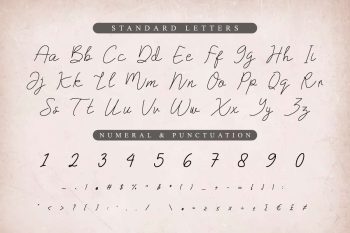 STANDARD LETTERS
Aa Bb Cc Dd Ee Ff Gg Hh Ii
Jj Kk Ll Mm Nn Oo Pp Qq Rr
Ss Tt Uu Vv Ww Xx Yy Zz
NUMERAL & PUNCTUATION
1 2 3 4 5 6 7 8 9 0